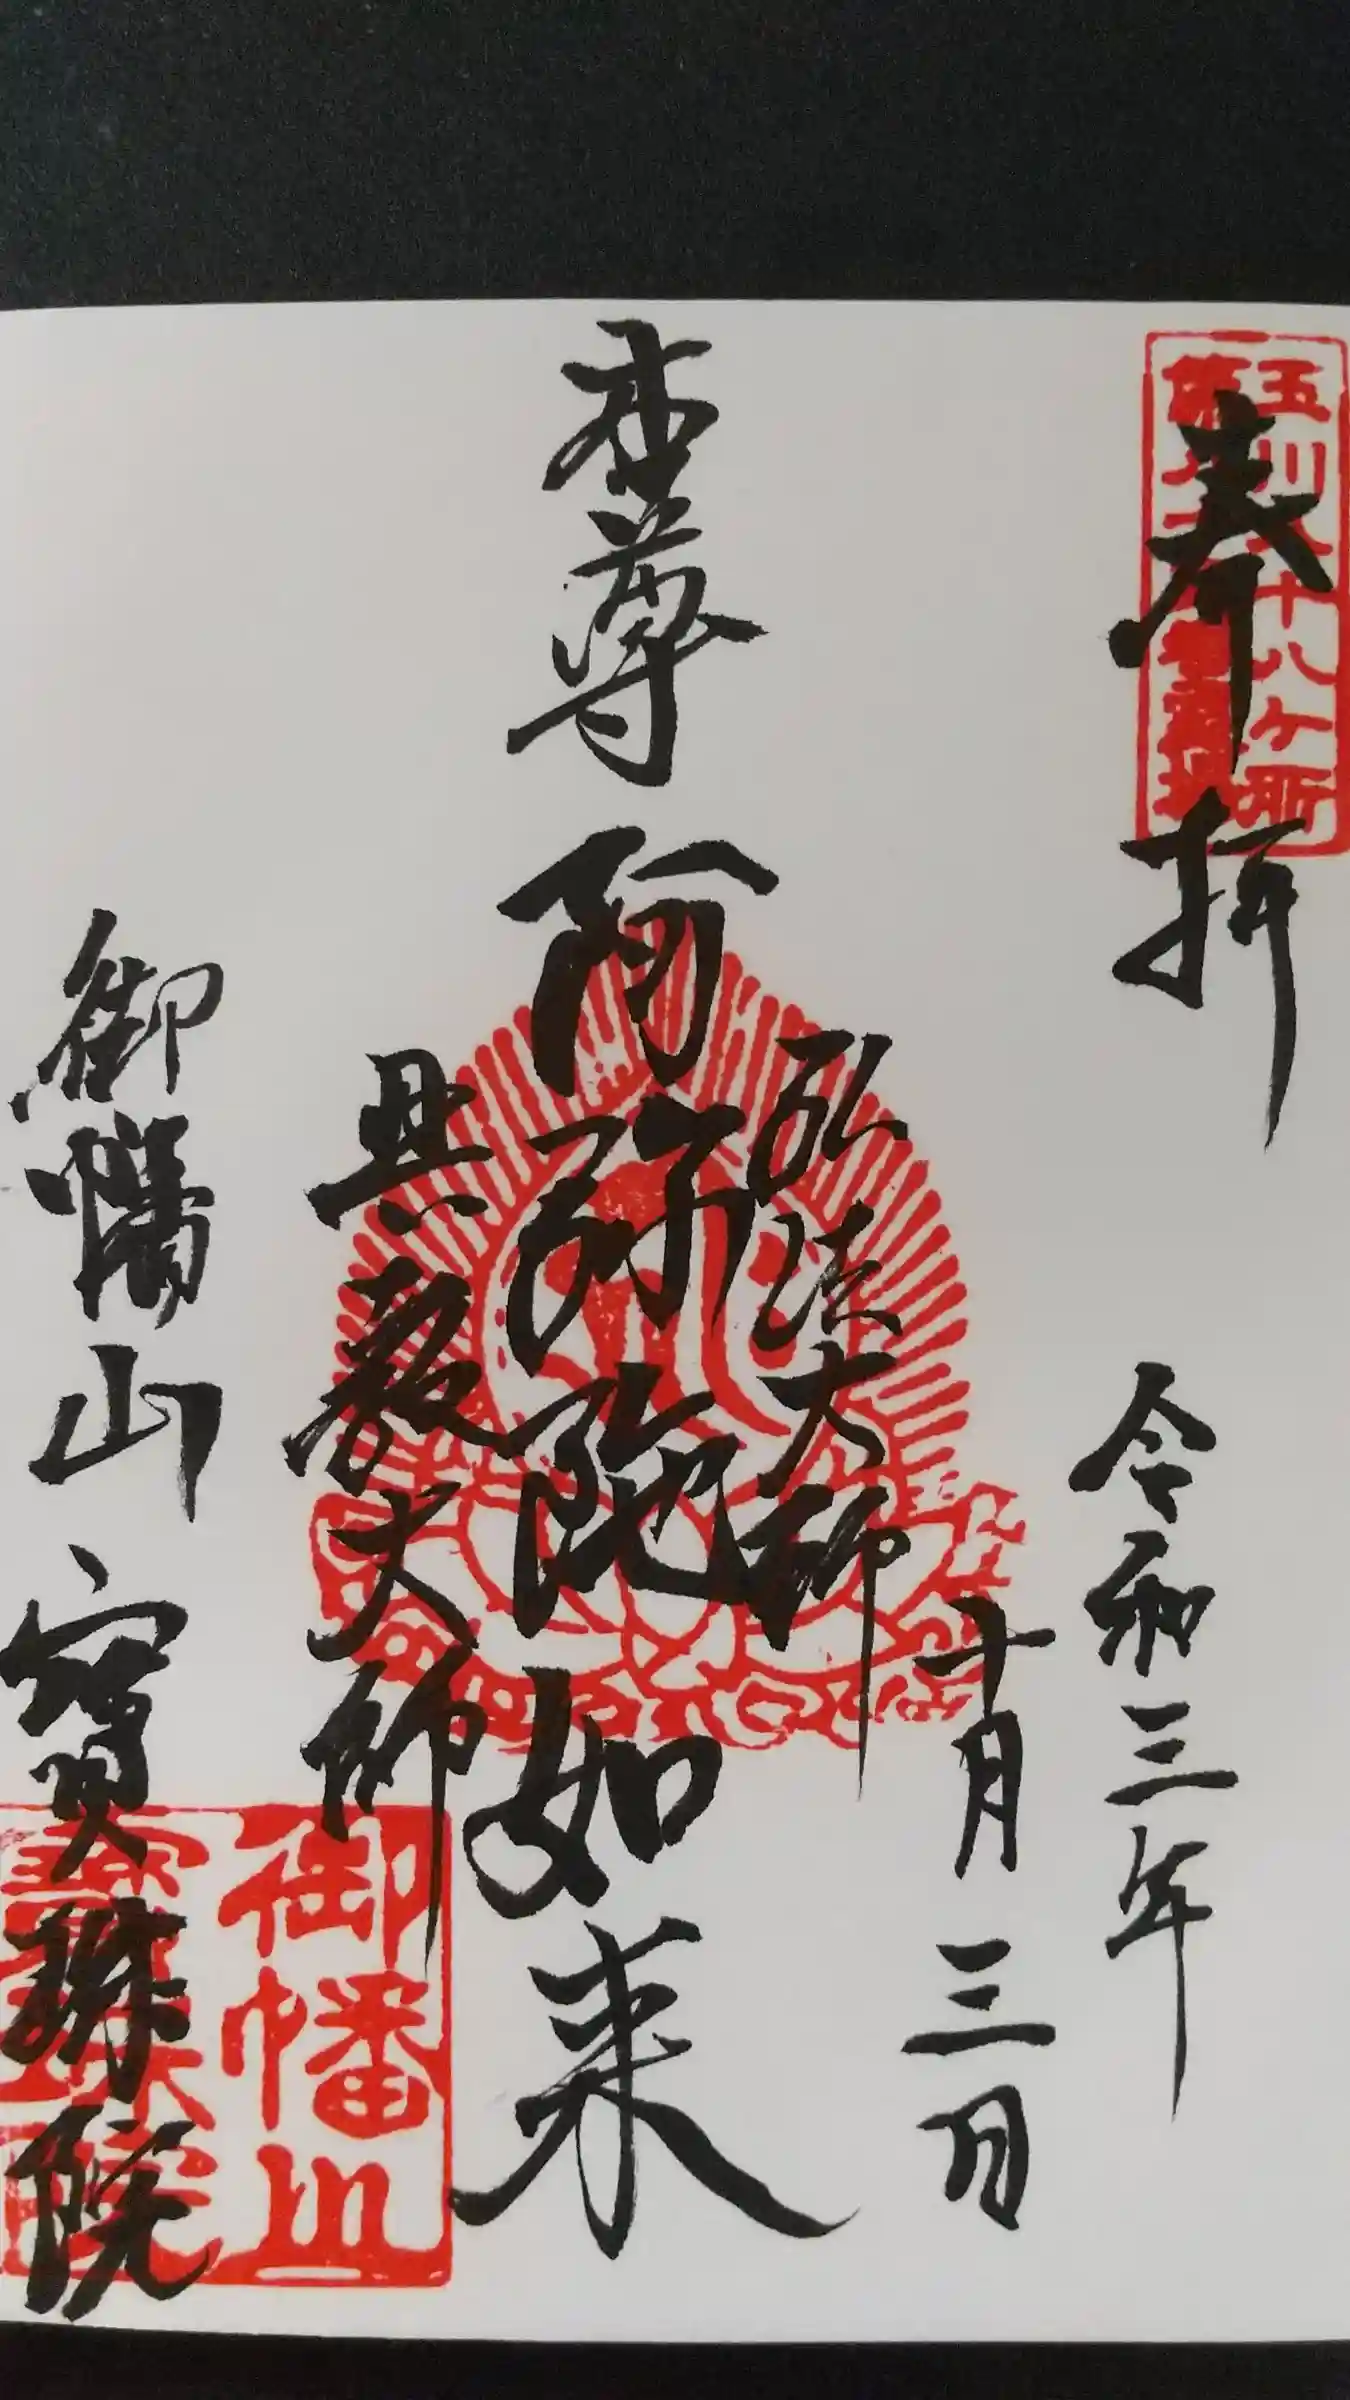 奉拝
玉川八十八ヶ所
令和三年
十月三日
弘法大師
本尊 阿弥陀如来
興教大師
御幡山 寳珠院
御幡山